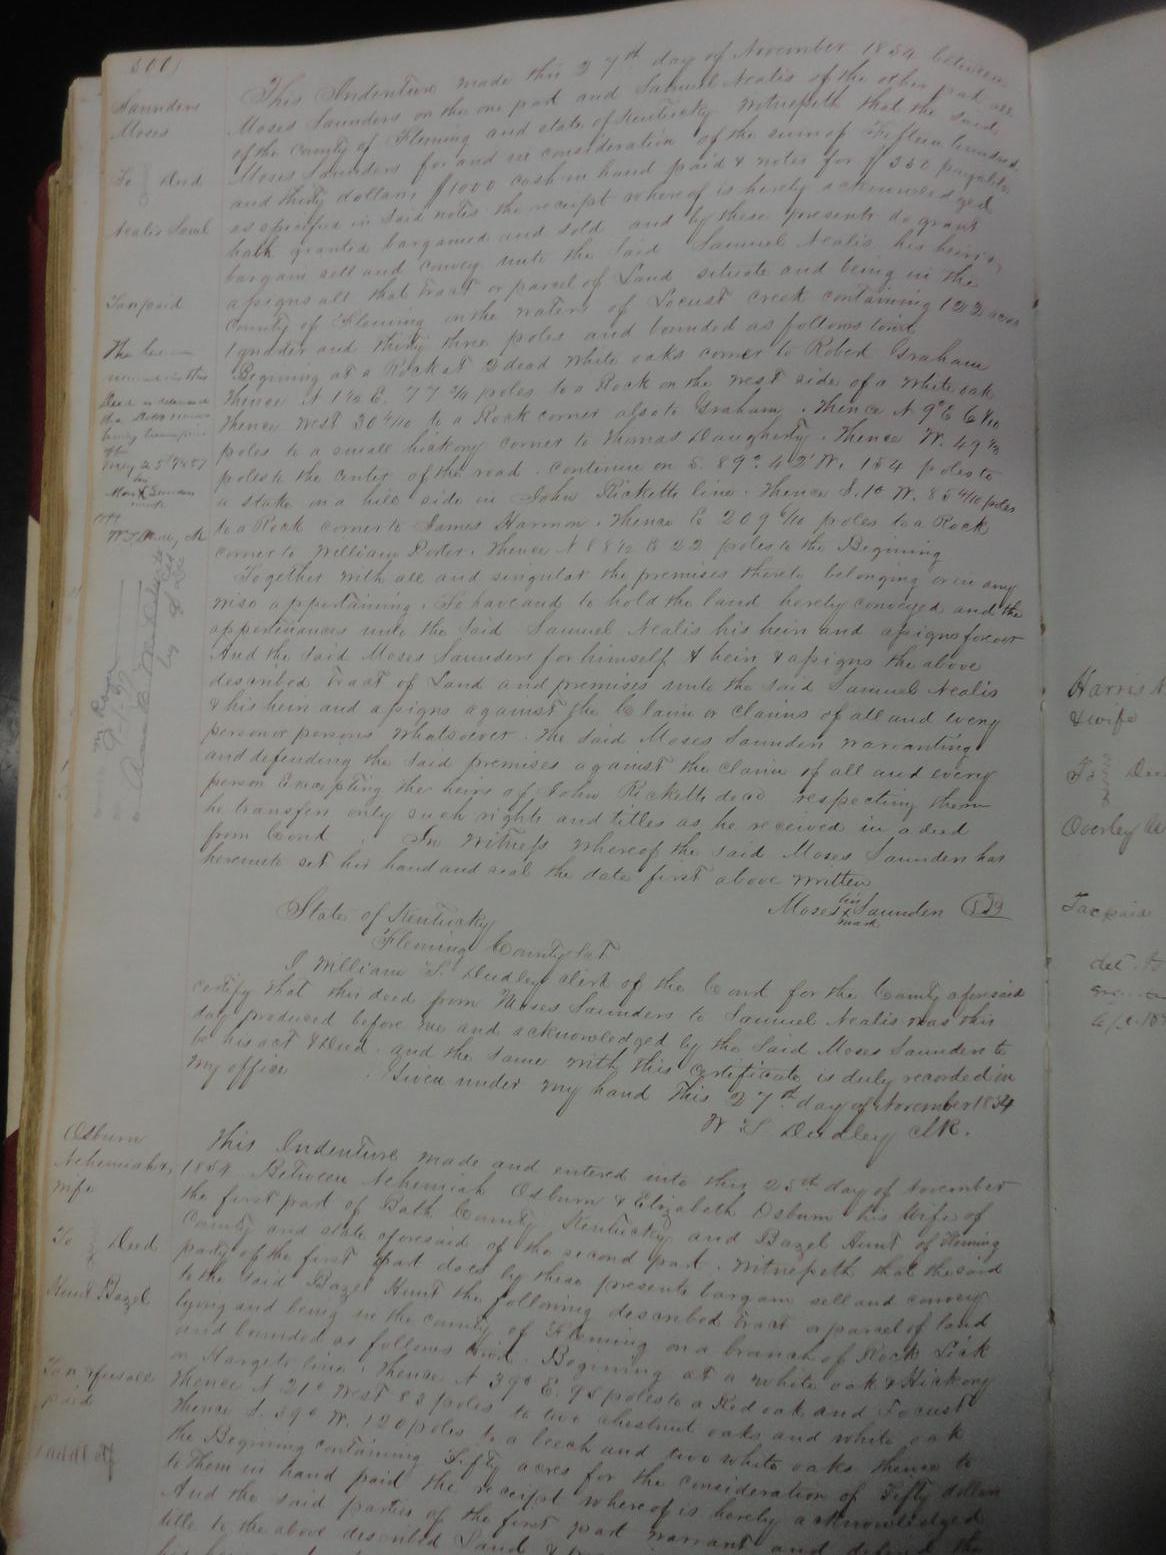 Saunders
Moses
To Deed
Nealis Saml
Tax paid
This Indenture made this 27th day of November 1854 between
Moses Saunders on the one part and Samuel Nealis of the other part all
of the County of Fleming and state of Kentucky Witnesseth that the said
Moses Saunders for and in consideration of the sum of Fifteen hundred
and thirty dollars $1000 cash in hand paid & notes for $530 payable
as specified in said notes the receipt whereof is hereby acknowledged
hath granted bargained and sold and by these presents do grant
bargain sell and convey unto the said Samuel Nealis his heirs
assigns all that tract or parcel of Land situate and being in the
County of Fleming on the waters of Locust creek containing 122 acres
1 quarter and thirty three poles and bounded as follows towit
Begining at a Rock at 2 dead white oaks corner to Robert Graham
thence N 1½ E. 77 poles to a Rock on the west side of a white oak
thence West 30 to a Rock corner also to Graham. Thence N 9° E 6
poles to a small hickory corner to Thomas Daugherty. Thence W. 49
poles to the center of the road. continue on S. 89° 42' W. 154 poles to
a stake on a hill side in John Ricketts line. Thence S. 1° W. 85 poles
to a Rock corner to James Harmon. Thence E 209 poles to a Rock
corner to William Porter. Thence N 88½ E 22 poles to the Begining
Together with all and singular the premises thereto belonging or in any
wise appertaining. To have and to hold the land hereby conveyed and the
appertenances unto the said Samuel Nealis his heirs and assigns forever
And the said Moses Saunders for himself & heirs & assigns the above
described tract of Land and premises unto the said Samuel Nealis
& his heirs and assigns against the Claim or claims of all and every
person or persons whatsoever. The said Moses Saunders warranting
and defending the said premises against the claim of all and every
person Excepting the heirs of John Ricketts decd respecting them
he transfers only such rights and titles as he received in a deed
from Cord In Witness whereof the said Moses Saunders has
hereunto set his hand and seal the date first above written
Moses his x mark Saunders
State of Kentucky
Fleming County Sct
I William S. Dudley clerk of the Court for the County aforesaid
certify that this deed from Moses Saunders to Samuel Nealis was this
day produced before me and acknowledged by the said Moses Saunders to
be his act & deed. and the same with this certificate is duly recorded in
my office. Given under my hand This 27th day of November 1854
W S Dudley Clk.
Osburn
Nehemiah &
wife
To Deed
Hunt Bazel
paid
This Indenture made and entered into this 25th day of November
1854 Between Nehemiah Osburn & Elizabeth Osburn his Wife of
the first part of Bath County Kentucky and Bazel Hunt of Fleming
County and state aforesaid of the second part. Witnesseth that the said
party of the first part does by these presents bargain sell and convey
to the said Bazel Hunt the following described tract a parcel of land
lying and being in the county of Fleming on a branch of Rock Lick
and bounded as follows towit. Begining at a white oak & Hickory
on Hargets line. Thence N 39° E. 98 poles to a Red oak and Locust
thence N 21° West 83 poles to two chestnut oaks and white oak
thence S. 39° W. 120 poles to a beech and two white oaks thence to
the Begining containing Fifty acres for the consideration of Fifty dollars
to them in hand paid the receipt whereof is hereby acknowledged
And the said parties of the first part warrant and defend the
title to the above described Land &
Harris
& wife
To Deed
Overley
Tax paid